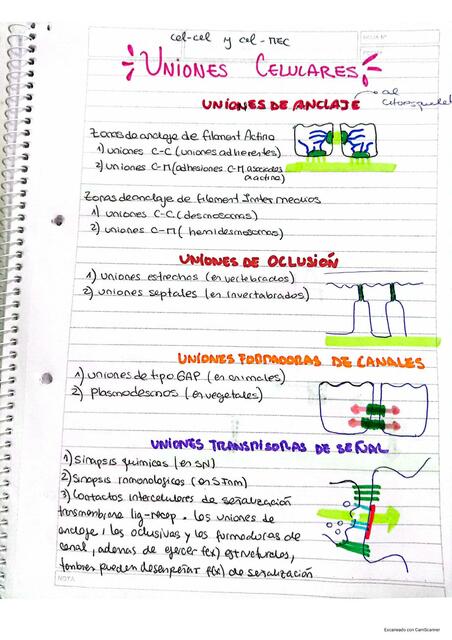 cel-cel y cel-MEC
UNIONES CELULARES
UNIONES DE ANCLAJE
al citoesqueleto
Zonas de anclaje de filament Actina
1) uniones C-C (uniones adherentes)
2) uniones C-M (adhesiones C-M asociadas a actina)
Zonas de anclaje de filament Intermedios
1) uniones C-C (desmosomas)
2) uniones C-M ( hemidesmosomas)
UNIONES DE OCLUSIÓN
1) uniones estrechas (en vertebrados)
2) uniones septales (en invertabrados)
UNIONES FORMADORAS DE CANALES
1) uniones de tipo GAP (en animales)
2) plasmodesmos (en vegetales)
UNIONES TRANSMISORAS DE SEÑAL
1) Sinapsis químicas (en SN)
2) Sinapsis inmonologicas (en S Inm)
3) Contactos intercelulares de señalización
transmembrana lig-recep. Los uniones de
anclaje, los oclusivas y los formadoras de
canal, ademas de ejercer f(x) estructurales,
tambien pueden desempeñar f(x) de señalización
NOTA
Escaneado con CamScanner